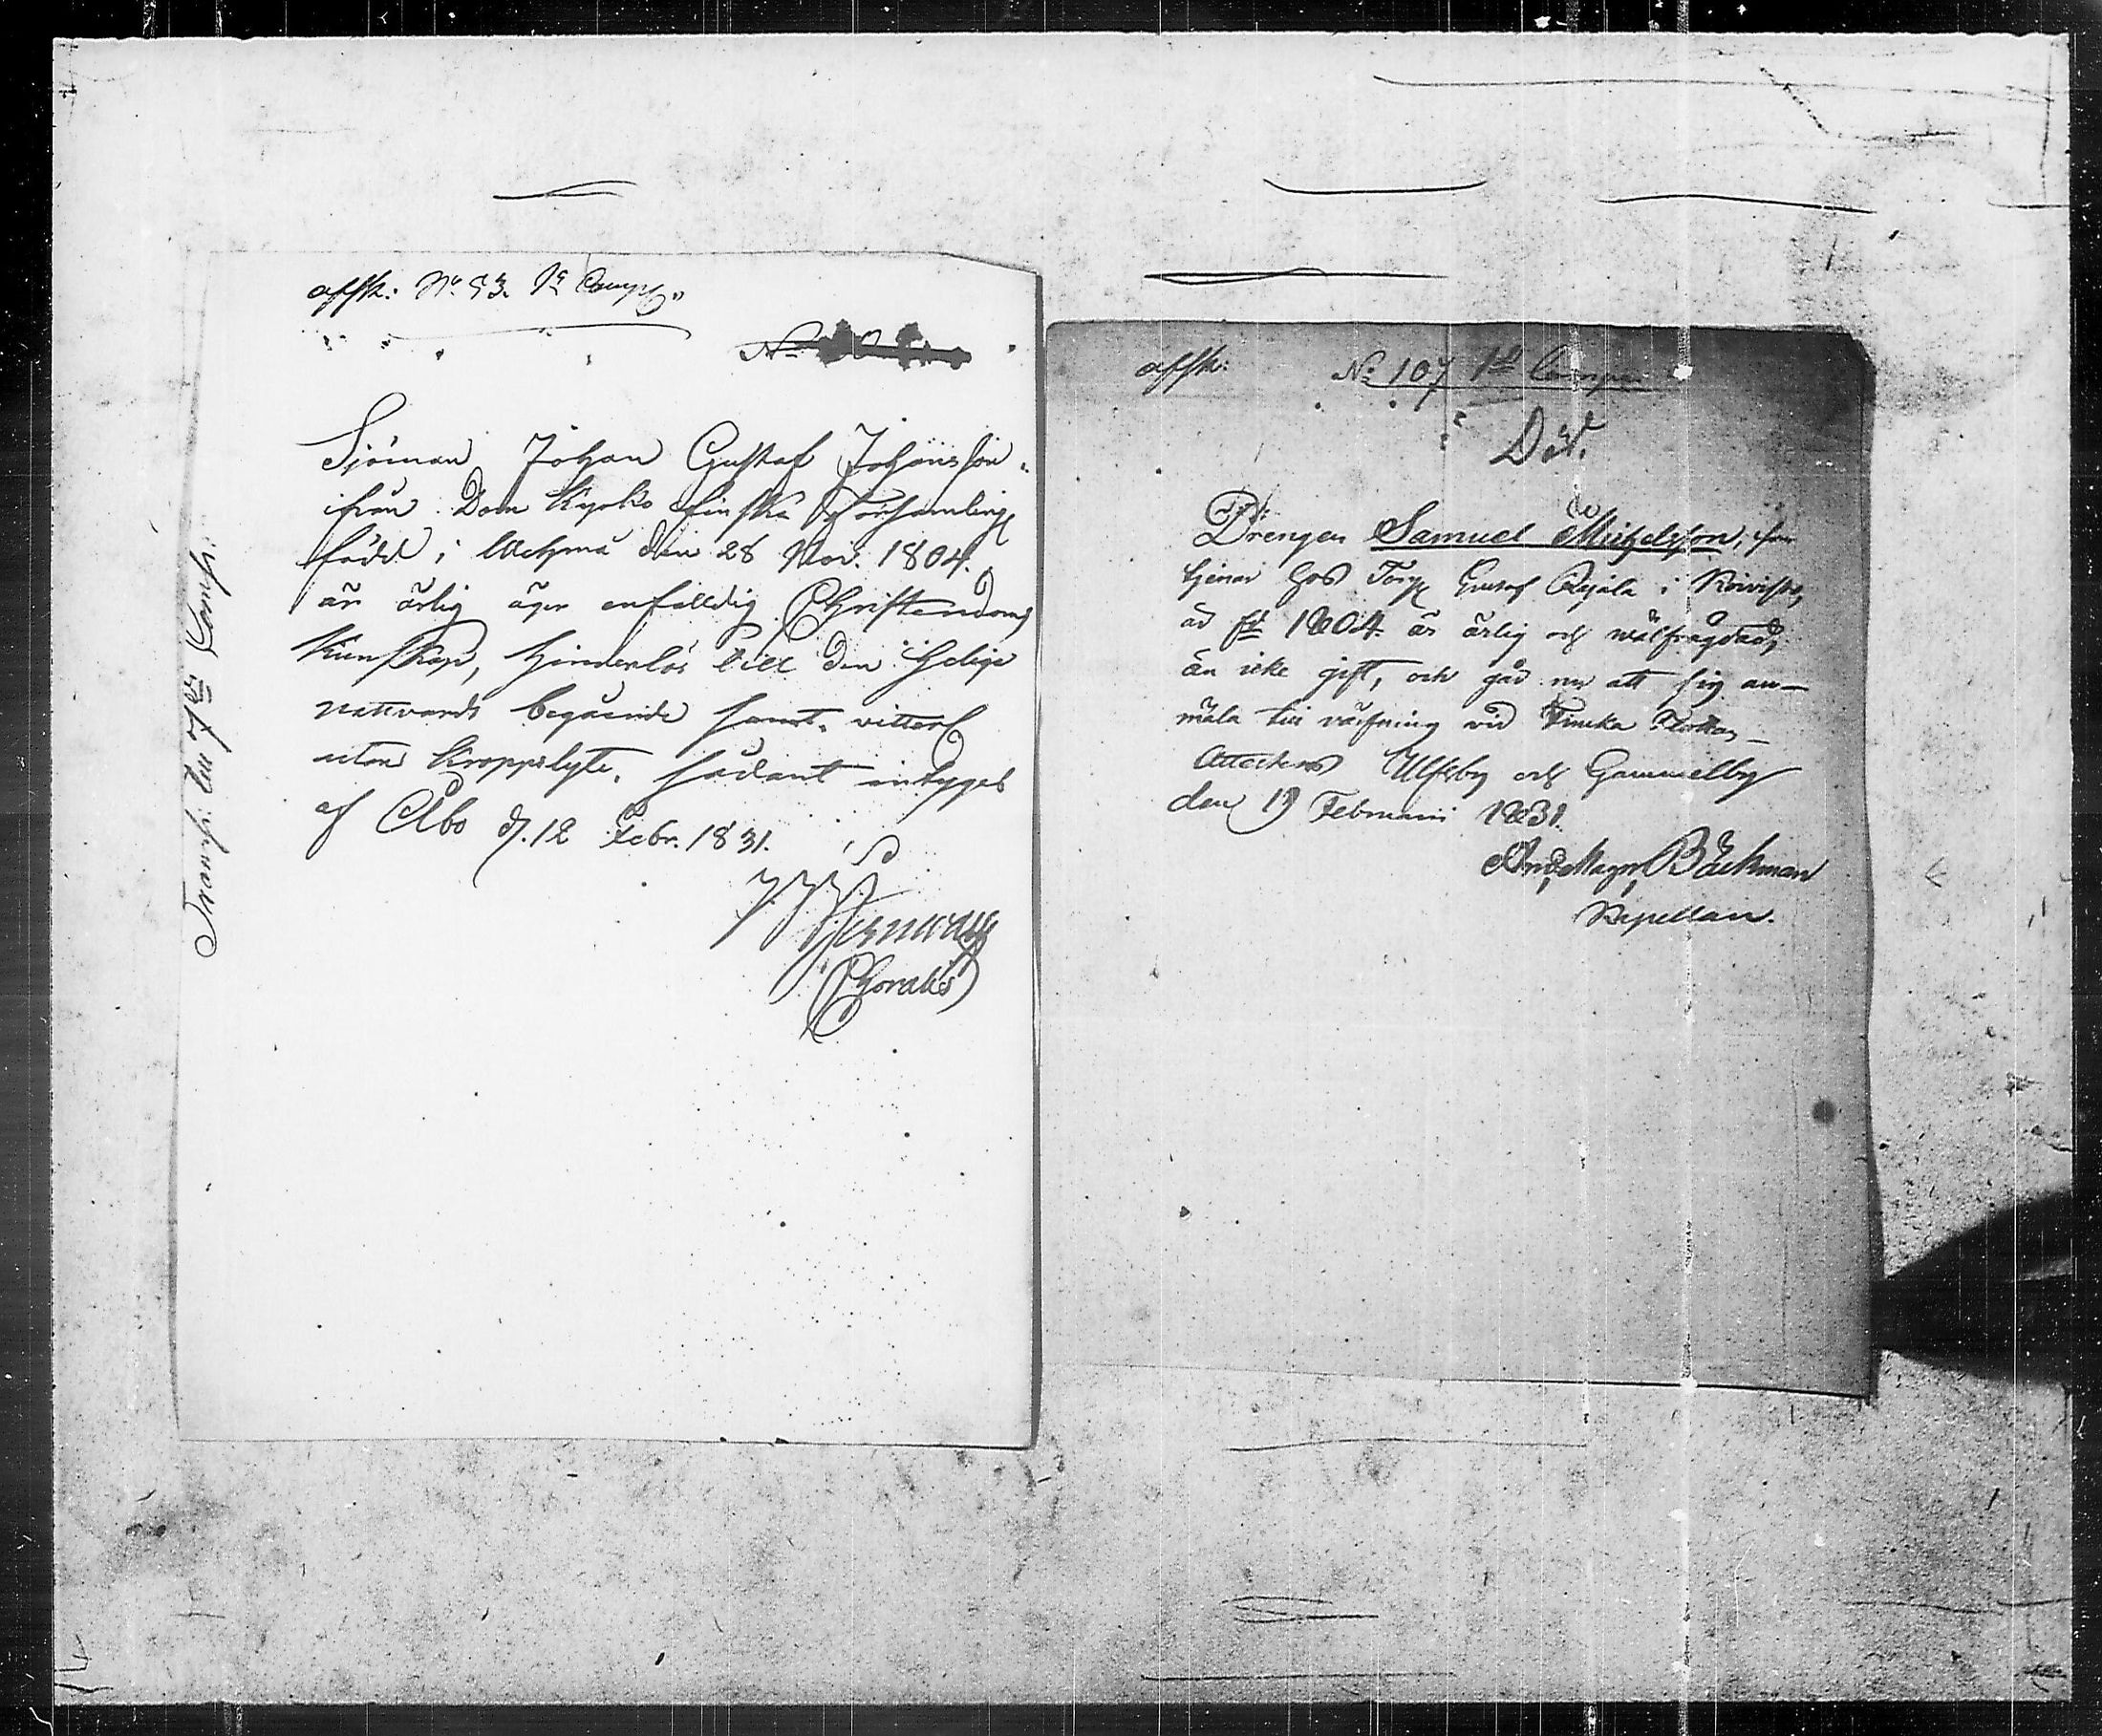 affk: No 53. 1a Comp:
No
Transp: till 7de Comp:
Sjöman Johan Gustaf Johansson
ifrån Dom Kyrko finska Församling
född i Wehmå den 28 Nov. 1804.
är ärlig äger enfalldig Christendoms
Kunskap, hinderlös till den helige
nattvards begående samt
utan kroppslyte, sådant intygas
af Åbo d. 12 Febr. 1831.
J. J.
Choralis
affk: No 107 1a Comp
Död.
Drengen Samuel Michelsson, som
tjenar hos Torp Gustaf Rajala i Koivisto,
är fd 1804. är ärlig och wälfrägdad,
än icke gift, och går nu att sig an-
mäla till värfning vid Finska Flottan,
Attesteras Ulfsby och Gammelby
den 19 Februarii 1831.
And. Magn. Bäckman
Kapellan.